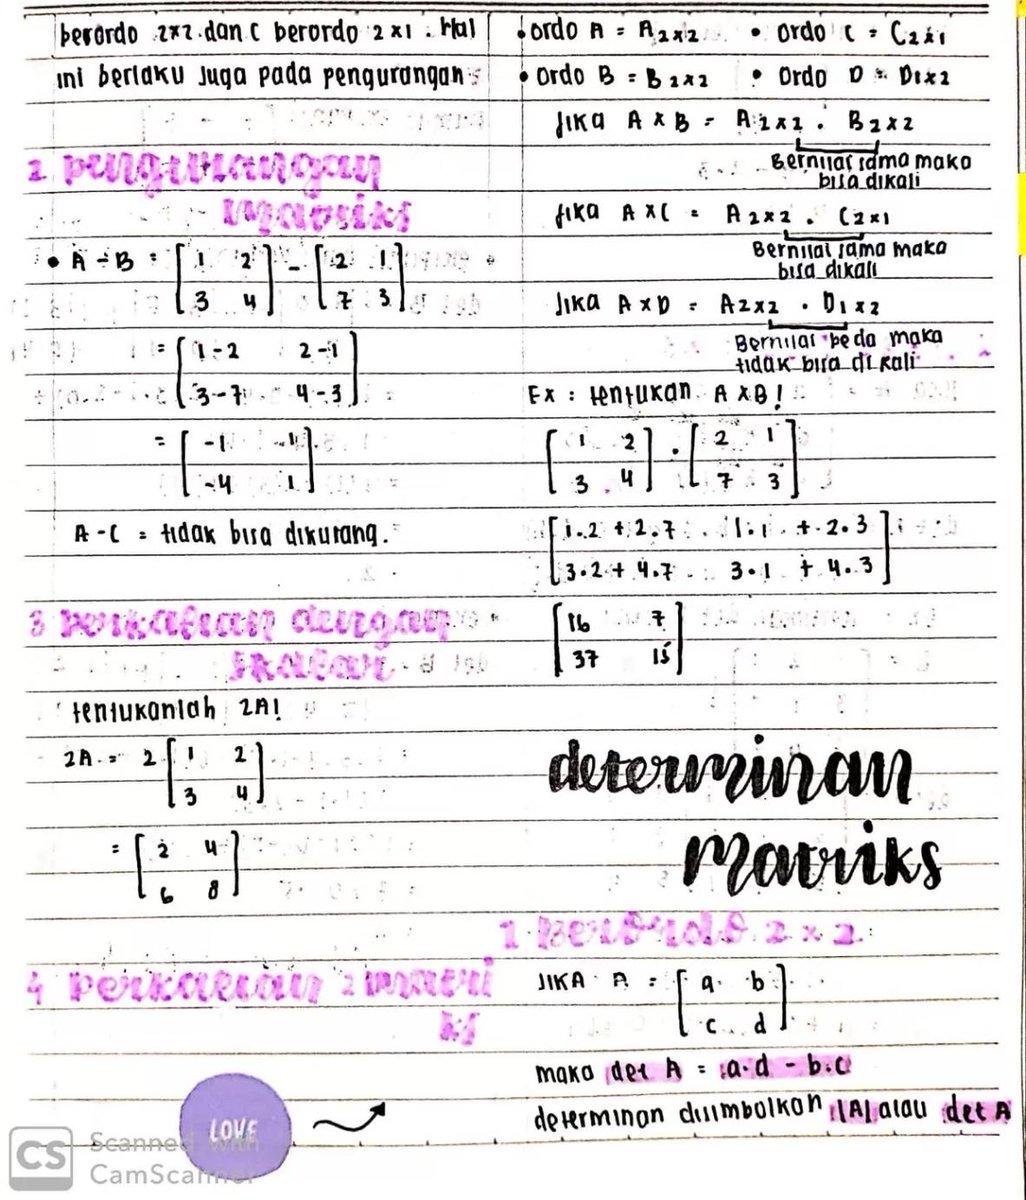 berordo 2x2 dan C berordo 2x1. Hal
ini berlaku juga pada pengurangan
2 pengurangan
Matriks
• A - B = [1 2] - [2 1]
[3 4] [7 3]
= [1-2 2-1]
[3-7 4-3]
= [-1 -1]
[-4 1]
A-C = tidak bisa dikurang.
3 perkalian dengan
skalar
tentukanlah 2A!
2A = 2 [1 2]
[3 4]
= [2 4]
[6 8]
4 perkalian 2 matri
ks
LOVE
• ordo A = A2x2 • ordo C = C2x1
• ordo B = B2x2 • ordo D = D1x2
Jika A x B = A2x2 . B2x2
Bernilai sama maka
bisa dikali
Jika A x C = A2x2 . C2x1
Bernilai sama maka
bisa dikali
Jika A x D = A2x2 . D1x2
Bernilai beda maka
tidak bisa di kali
Ex : tentukan A x B!
[1 2] . [2 1]
[3 4] [7 3]
[1.2 + 2.7 1.1 + 2.3]
[3.2 + 4.7 3.1 + 4.3]
[16 7]
[37 15]
determinan
Matriks
1 Berordo 2x2
JIKA A = [a b]
[c d]
maka det A = a.d - b.c
determinan disimbolkan |A| atau det A
CS Scanned with
CamScanner